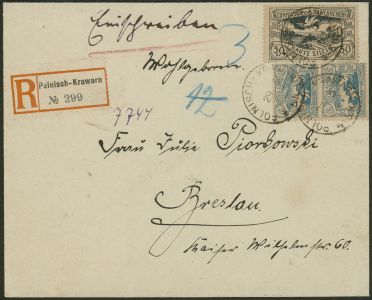 Einschreiben
3
R
Polnisch-Krawarn
№ 299
Wohlgeboren
12
7744
Frau Julie Piorkowski
Breslau.
Kaiser Wilhelmstr 60.
HAUTE SILÉSIE
50 50